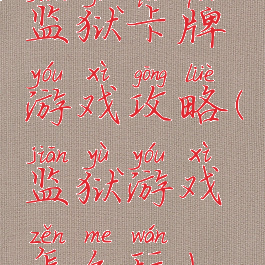 监狱卡牌
yóu xì gōng lüè
游戏攻略(
jiān yù yóu xì
监狱游戏
zěn me wán
怎么玩)